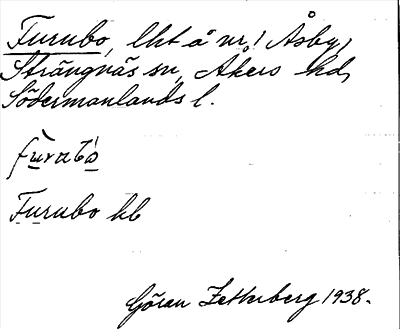 Furubo, lht å nr 1 Åsby,
Strängnäs sn, Åkers hd,
Södermanlands l.
fùrubó
Furubo kb
Göran Zetterberg 1938.